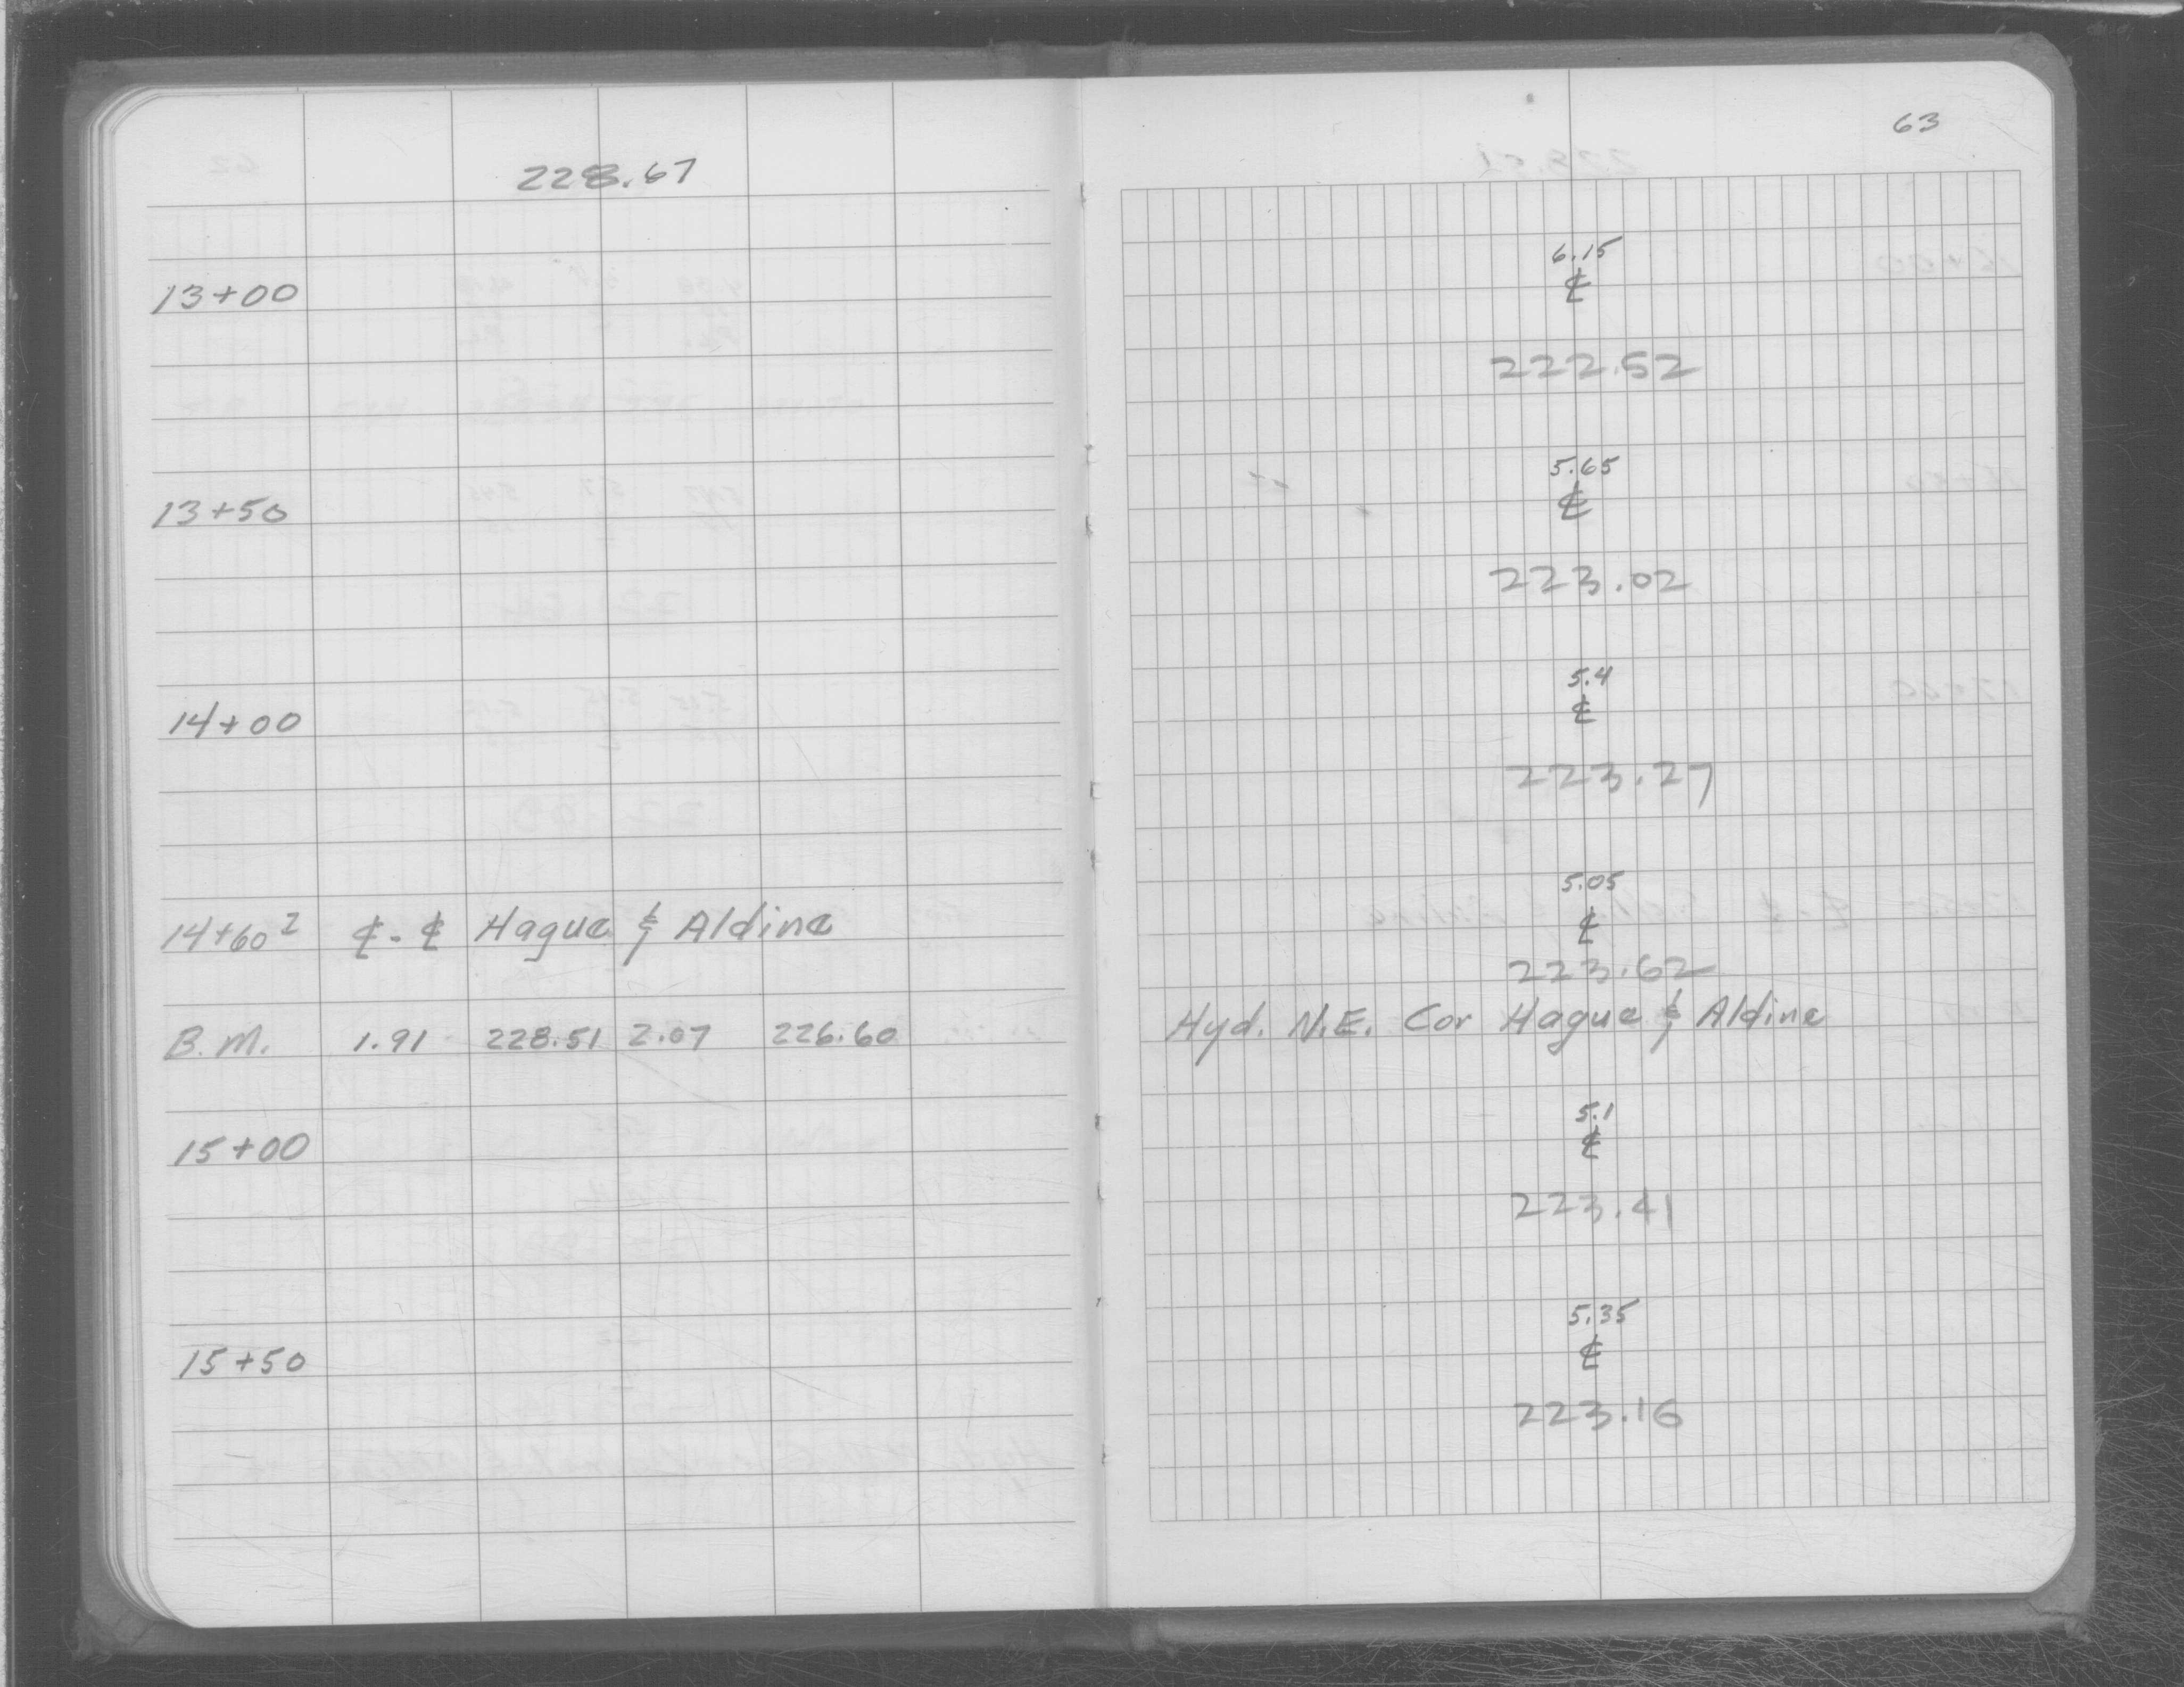 63
228.67
13+00 6.15
℄
222.52
13+50 5.65
℄
223.02
14+00 5.4
℄
223.27
5.05
14+60² ℄-℄ Hague & Aldine ℄
223.62
B.M. 1.91 228.51 2.07 226.60 Hyd. N.E. Cor Hague & Aldine
5.1
15+00 ℄
223.41
5.35
15+50 ℄
223.16